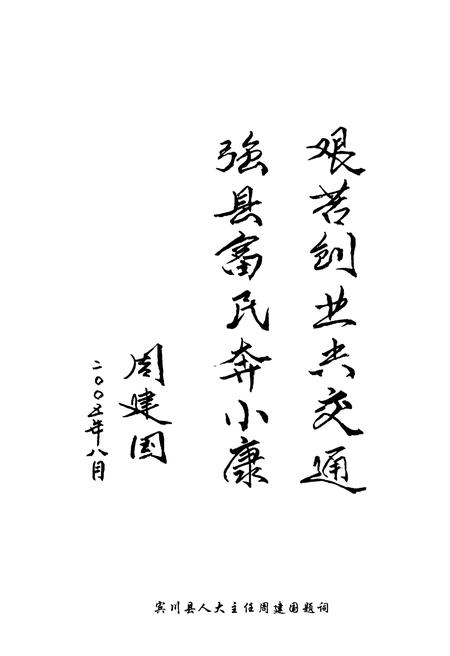 艰苦创业共交通
强县富民奔小康
周建国
二〇〇五年八月
宾川县人大主任周建国题词